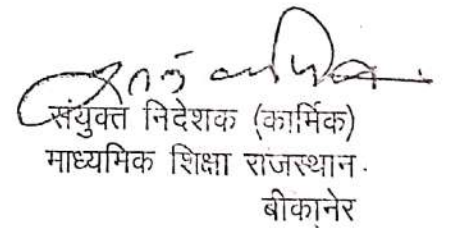 संयुक्त निदेशक (कार्मिक)
माध्यमिक शिक्षा राजस्थान.
बीकानेर